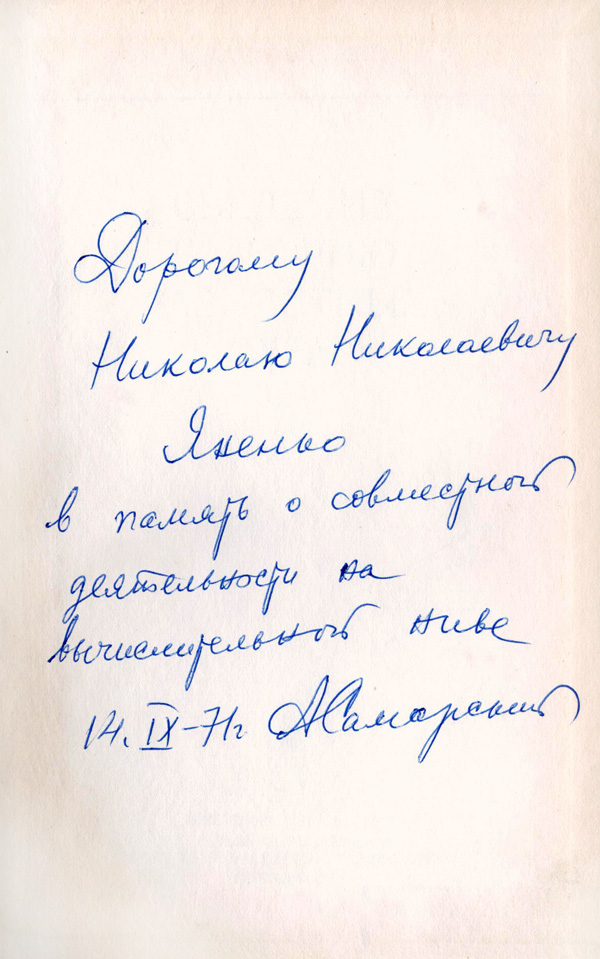 Дорогому
Николаю Николаевичу
Яненко
в память о совместной
деятельности на
вычислительной ниве
14. IX-71г. АСамарский